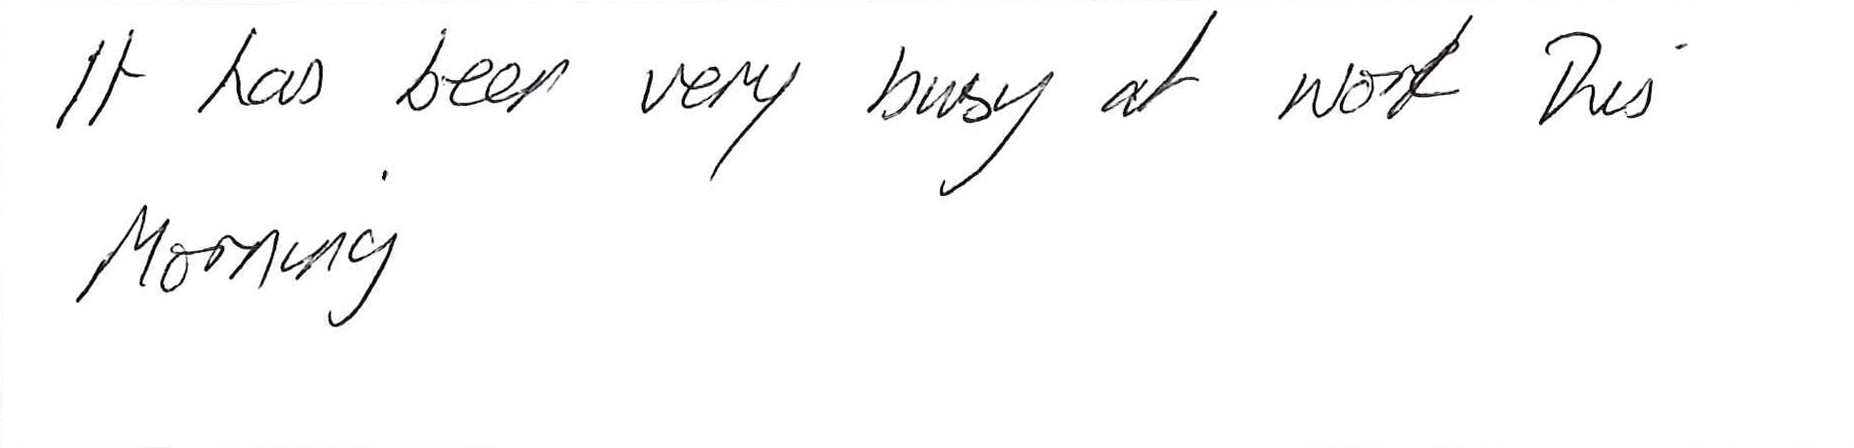 It has been very busy at work This
Morning